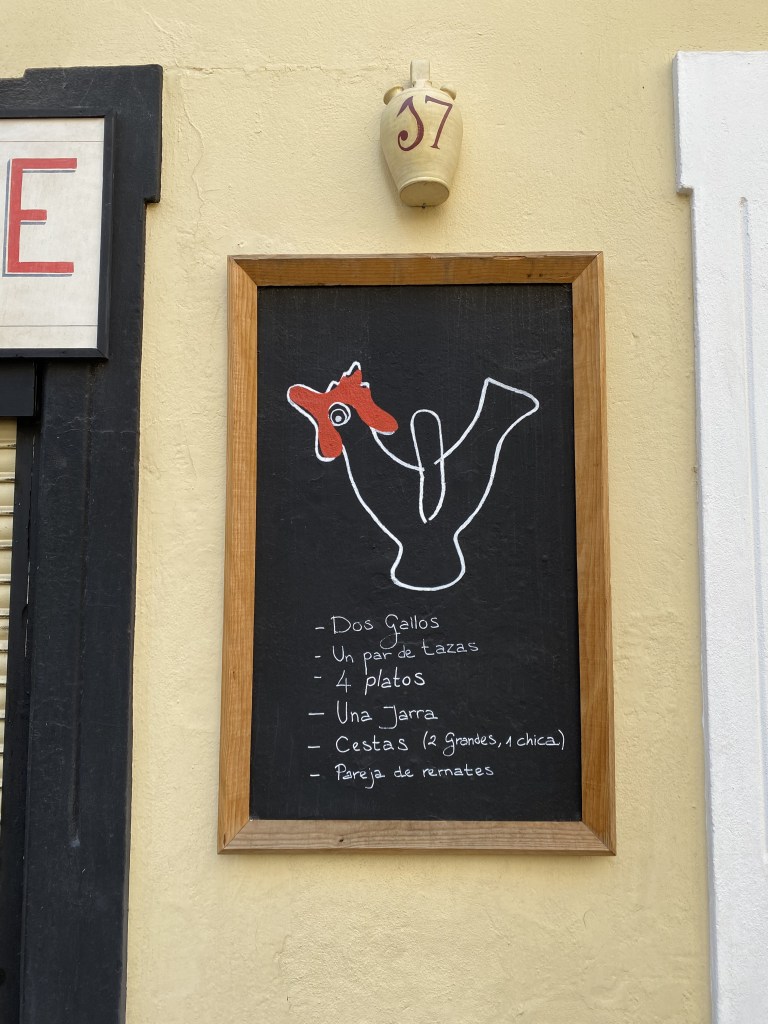 E
17
- Dos Gallos
- Un par de tazas
- 4 platos
- Una Jarra
- Cestas (2 Grandes, 1 chica)
- Pareja de remates